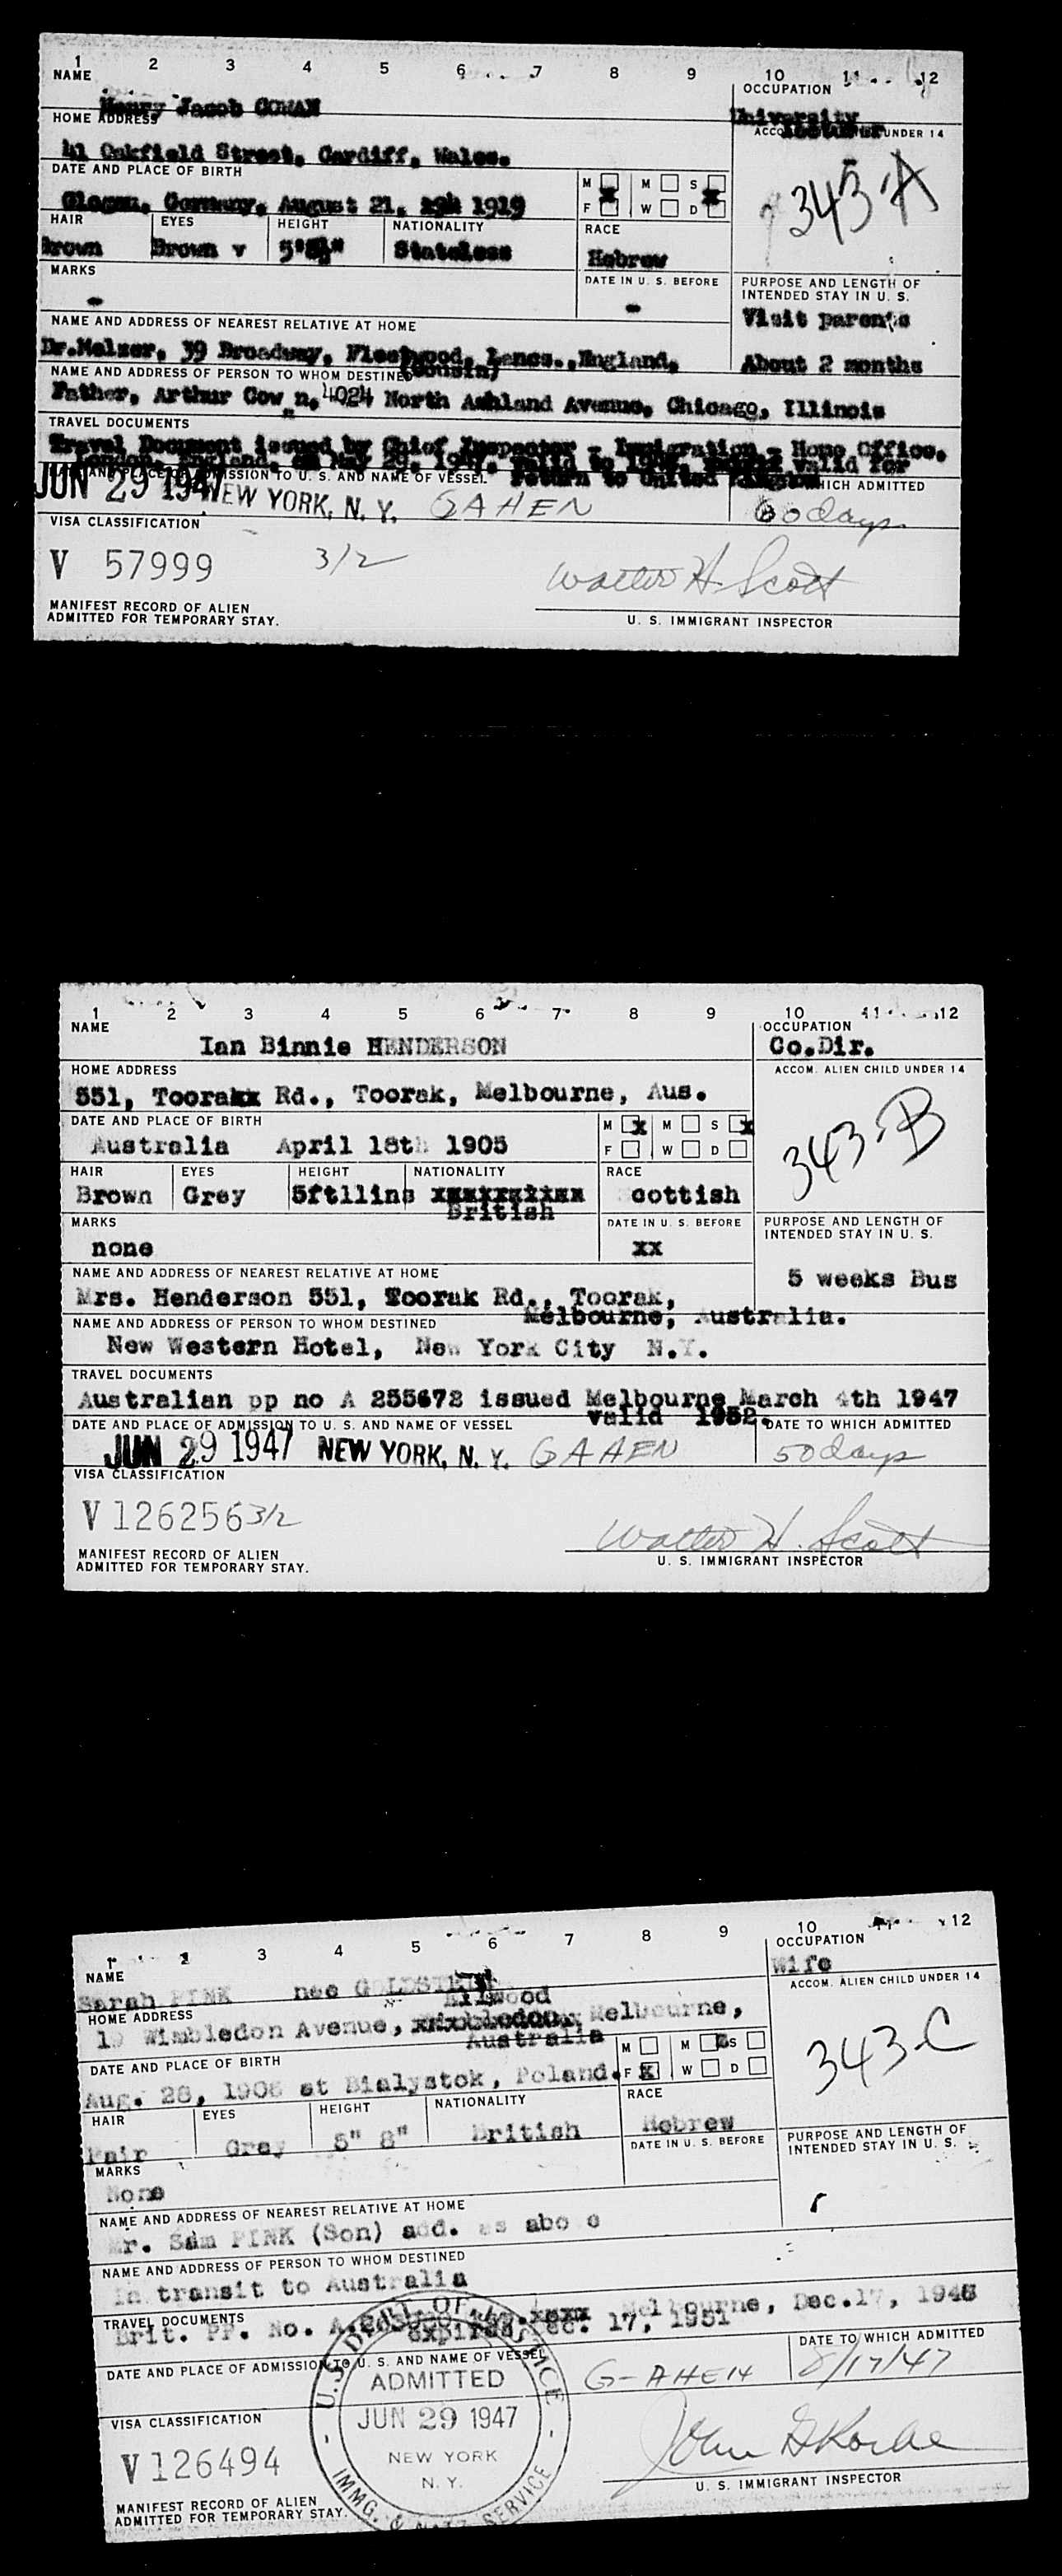 1 2 3 4 5 6 7 8 9 10 11 12
NAME
OCCUPATION
Henry Jacob COWAN
University
HOME ADDRESS
ACCOM. ALIEN CHILD UNDER 14
41 Oakfield Street, Cardiff, Wales.
343-A
DATE AND PLACE OF BIRTH
M M S
Glogau, Germany, August 21, 1919
F W D
HAIR EYES HEIGHT NATIONALITY RACE
Brown Brown v Stateless Hebrew
MARKS DATE IN U. S. BEFORE PURPOSE AND LENGTH OF
INTENDED STAY IN U. S.
- - Visit parents
NAME AND ADDRESS OF NEAREST RELATIVE AT HOME
Dr.Melzer, 39 Broadway, Fleetwood, Lancs.,England, About 2 months
NAME AND ADDRESS OF PERSON TO WHOM DESTINED (Cousin)
Father, Arthur Cow n, 4024 North Ashland Avenue, Chicago, Illinois
TRAVEL DOCUMENTS
Travel Document issued by Chief Inspector - Immigration - Home Office,
London, England, May 29, 1947, valid to valid for
return to United Kingdom
ADMISSION TO U. S. AND NAME OF VESSEL WHICH ADMITTED
JUN 29 1947 NEW YORK, N. Y. GAHEN 60 days
VISA CLASSIFICATION
V 57999 3/2 Walter H. Scott
MANIFEST RECORD OF ALIEN
ADMITTED FOR TEMPORARY STAY. U. S. IMMIGRANT INSPECTOR
1 2 3 4 5 6 7 8 9 10 11 12
NAME OCCUPATION
Ian Binnie HENDERSON Co.Dir.
HOME ADDRESS ACCOM. ALIEN CHILD UNDER 14
551, Toorakx Rd., Toorak, Melbourne, Aus.
343-B
DATE AND PLACE OF BIRTH M x M S x
Australia April 18th 1905 F W D
HAIR EYES HEIGHT NATIONALITY RACE
Brown Grey 5ft11ins British cottish
MARKS DATE IN U. S. BEFORE PURPOSE AND LENGTH OF
INTENDED STAY IN U. S.
none xx
NAME AND ADDRESS OF NEAREST RELATIVE AT HOME 5 weeks Bus
Mrs. Henderson 551, Toorak Rd., Toorak,
Melbourne, Australia.
NAME AND ADDRESS OF PERSON TO WHOM DESTINED
New Western Hotel, New York City N.Y.
TRAVEL DOCUMENTS
Australian pp no A 255672 issued Melbourne March 4th 1947
valid 1952.
DATE AND PLACE OF ADMISSION TO U. S. AND NAME OF VESSEL DATE TO WHICH ADMITTED
JUN 29 1947 NEW YORK, N. Y. GAHEN 50 days
VISA CLASSIFICATION
V 1262563/2 Walter H. Scott
MANIFEST RECORD OF ALIEN
ADMITTED FOR TEMPORARY STAY. U. S. IMMIGRANT INSPECTOR
1 2 3 4 5 6 7 8 9 10 11 12
NAME OCCUPATION
Sarah PINK nee GOLDSTEIN Wife
HOME ADDRESS ACCOM. ALIEN CHILD UNDER 14
Elwood
Wimbledon Avenue, Melbourne,
Australia
343-C
DATE AND PLACE OF BIRTH M M S
Aug. 28, 1908 at Bialystok, Poland. F X W D
HAIR EYES HEIGHT NATIONALITY RACE
Fair Grey 5" 8" British Hebrew
MARKS DATE IN U. S. BEFORE PURPOSE AND LENGTH OF
INTENDED STAY IN U. S.
None
NAME AND ADDRESS OF NEAREST RELATIVE AT HOME
Mr. Sam PINK (Son) add. as abo e
NAME AND ADDRESS OF PERSON TO WHOM DESTINED
In transit to Australia
TRAVEL DOCUMENTS
Brit. PP. No. Melbourne, Dec.17, 1946
expires Dec. 17, 1951
DATE AND PLACE OF ADMISSION TO U. S. AND NAME OF VESSEL DATE TO WHICH ADMITTED
G-AHEN 8/17/47
U.S. DEPT. OF JUSTICE
ADMITTED
JUN 29 1947
NEW YORK
N. Y.
IMMG. & NATZ. SERVICE
VISA CLASSIFICATION
V 126494
U. S. IMMIGRANT INSPECTOR
MANIFEST RECORD OF ALIEN
ADMITTED FOR TEMPORARY STAY.